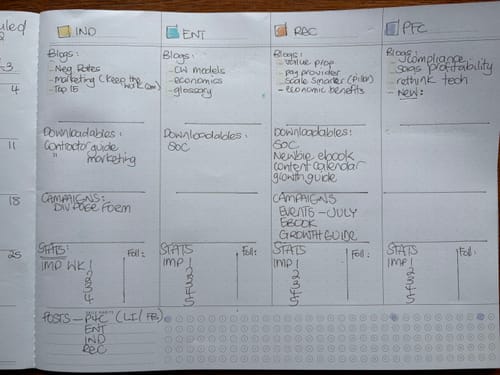 uled
IND
Blogs:
- Neg Rates
- marketing (keep the work com)
- Top 15
Downloadables:
Contractor guide
" marketing
CAMPAIGNS:
DIV page form
STATS:
Foll:
IMP WK 1
2
3
4
5
ENT
Blogs:
- CW models
- economics
- glossary
Downloadables:
SOC
STATS
Foll:
IMP 1
2
3
4
5
REC
Blogs:
- value prop
- pay provider
- Scale Smarter (Pillar)
- economic benefits
Downloadables:
SOC
Newbie ebook
content calendar
growth guide
CAMPAIGNS
EVENTS - JULY
EBOOK
GROWTH GUIDE
STATS
Foll:
IMP 1
2
3
4
5
PFC
Blogs:
- compliance
- SaaS profitability
- rethink tech
- NEW:
STATS
Foll:
IMP 1
2
3
4
5
4
11
18
25
POSTS - PFC (LI / FB)
ENT
IND
REC